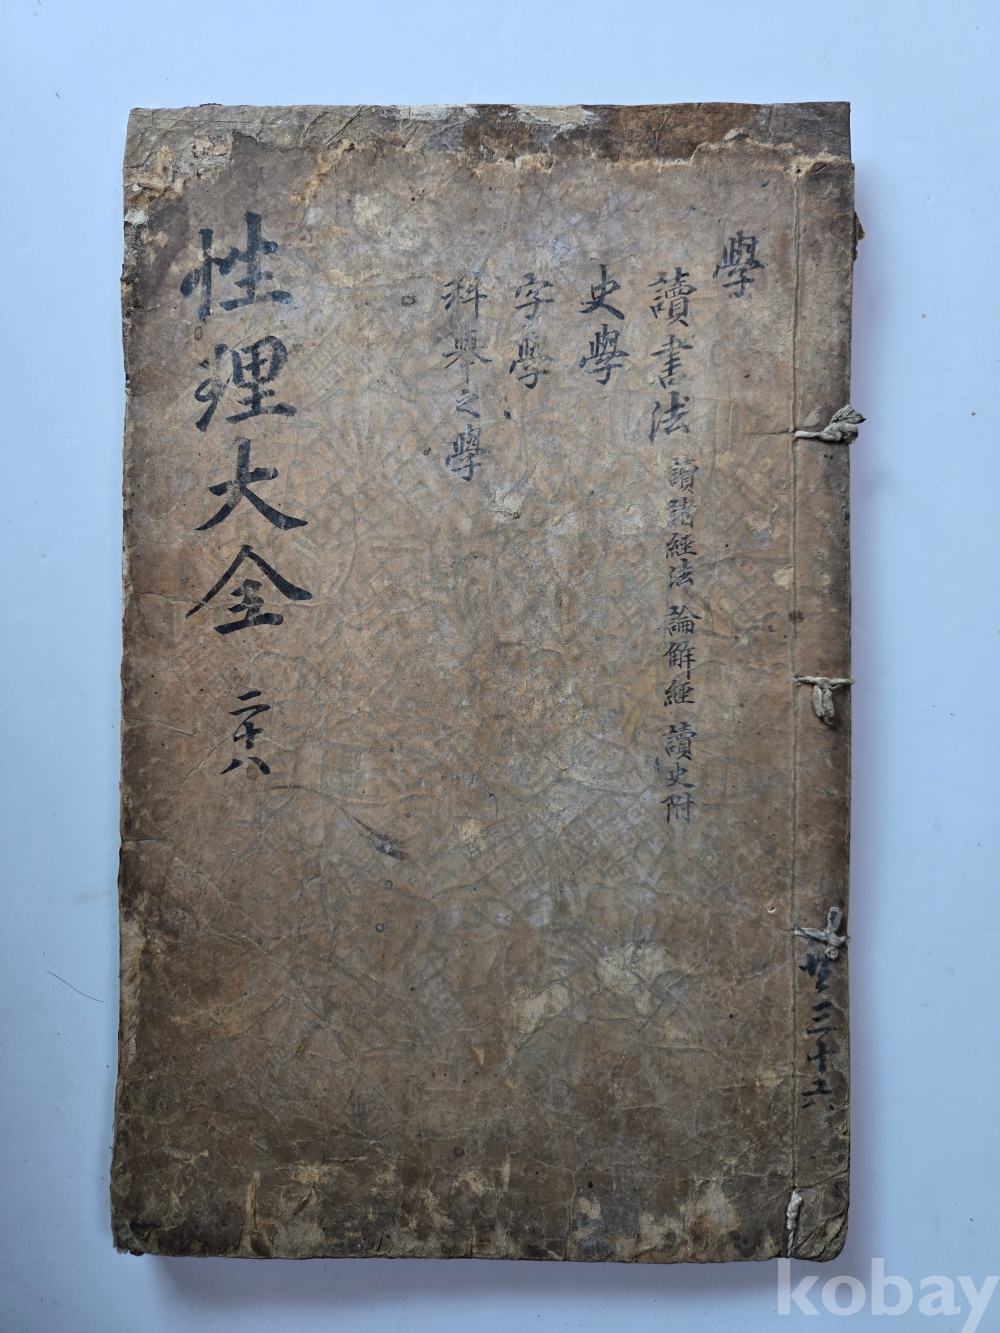 學
讀書法 讀諸經法 論解經 讀史附
史學
字學
科舉之學
性理大全 二十八
共三十六
kobay